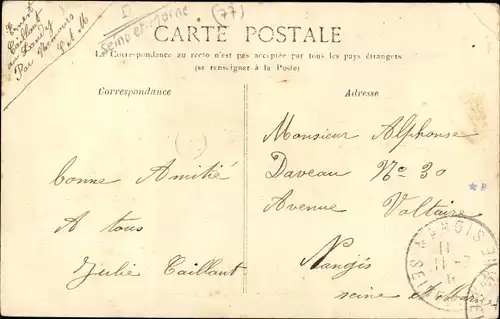 Ernest
Taillant
au Landy
Par Nemours
S et M
Seine-et-Marne
(77)
CARTE POSTALE
La Correspondance au recto n'est pas acceptée par tous les pays étrangers
(se renseigner à la Poste)
Correspondance
Adresse
Bonne Amitié
A tous
Julie Taillant
Monsieur Alphonse
Daveau No 30
Avenue Voltaire
Nangis
seine et Marne
NANGIS